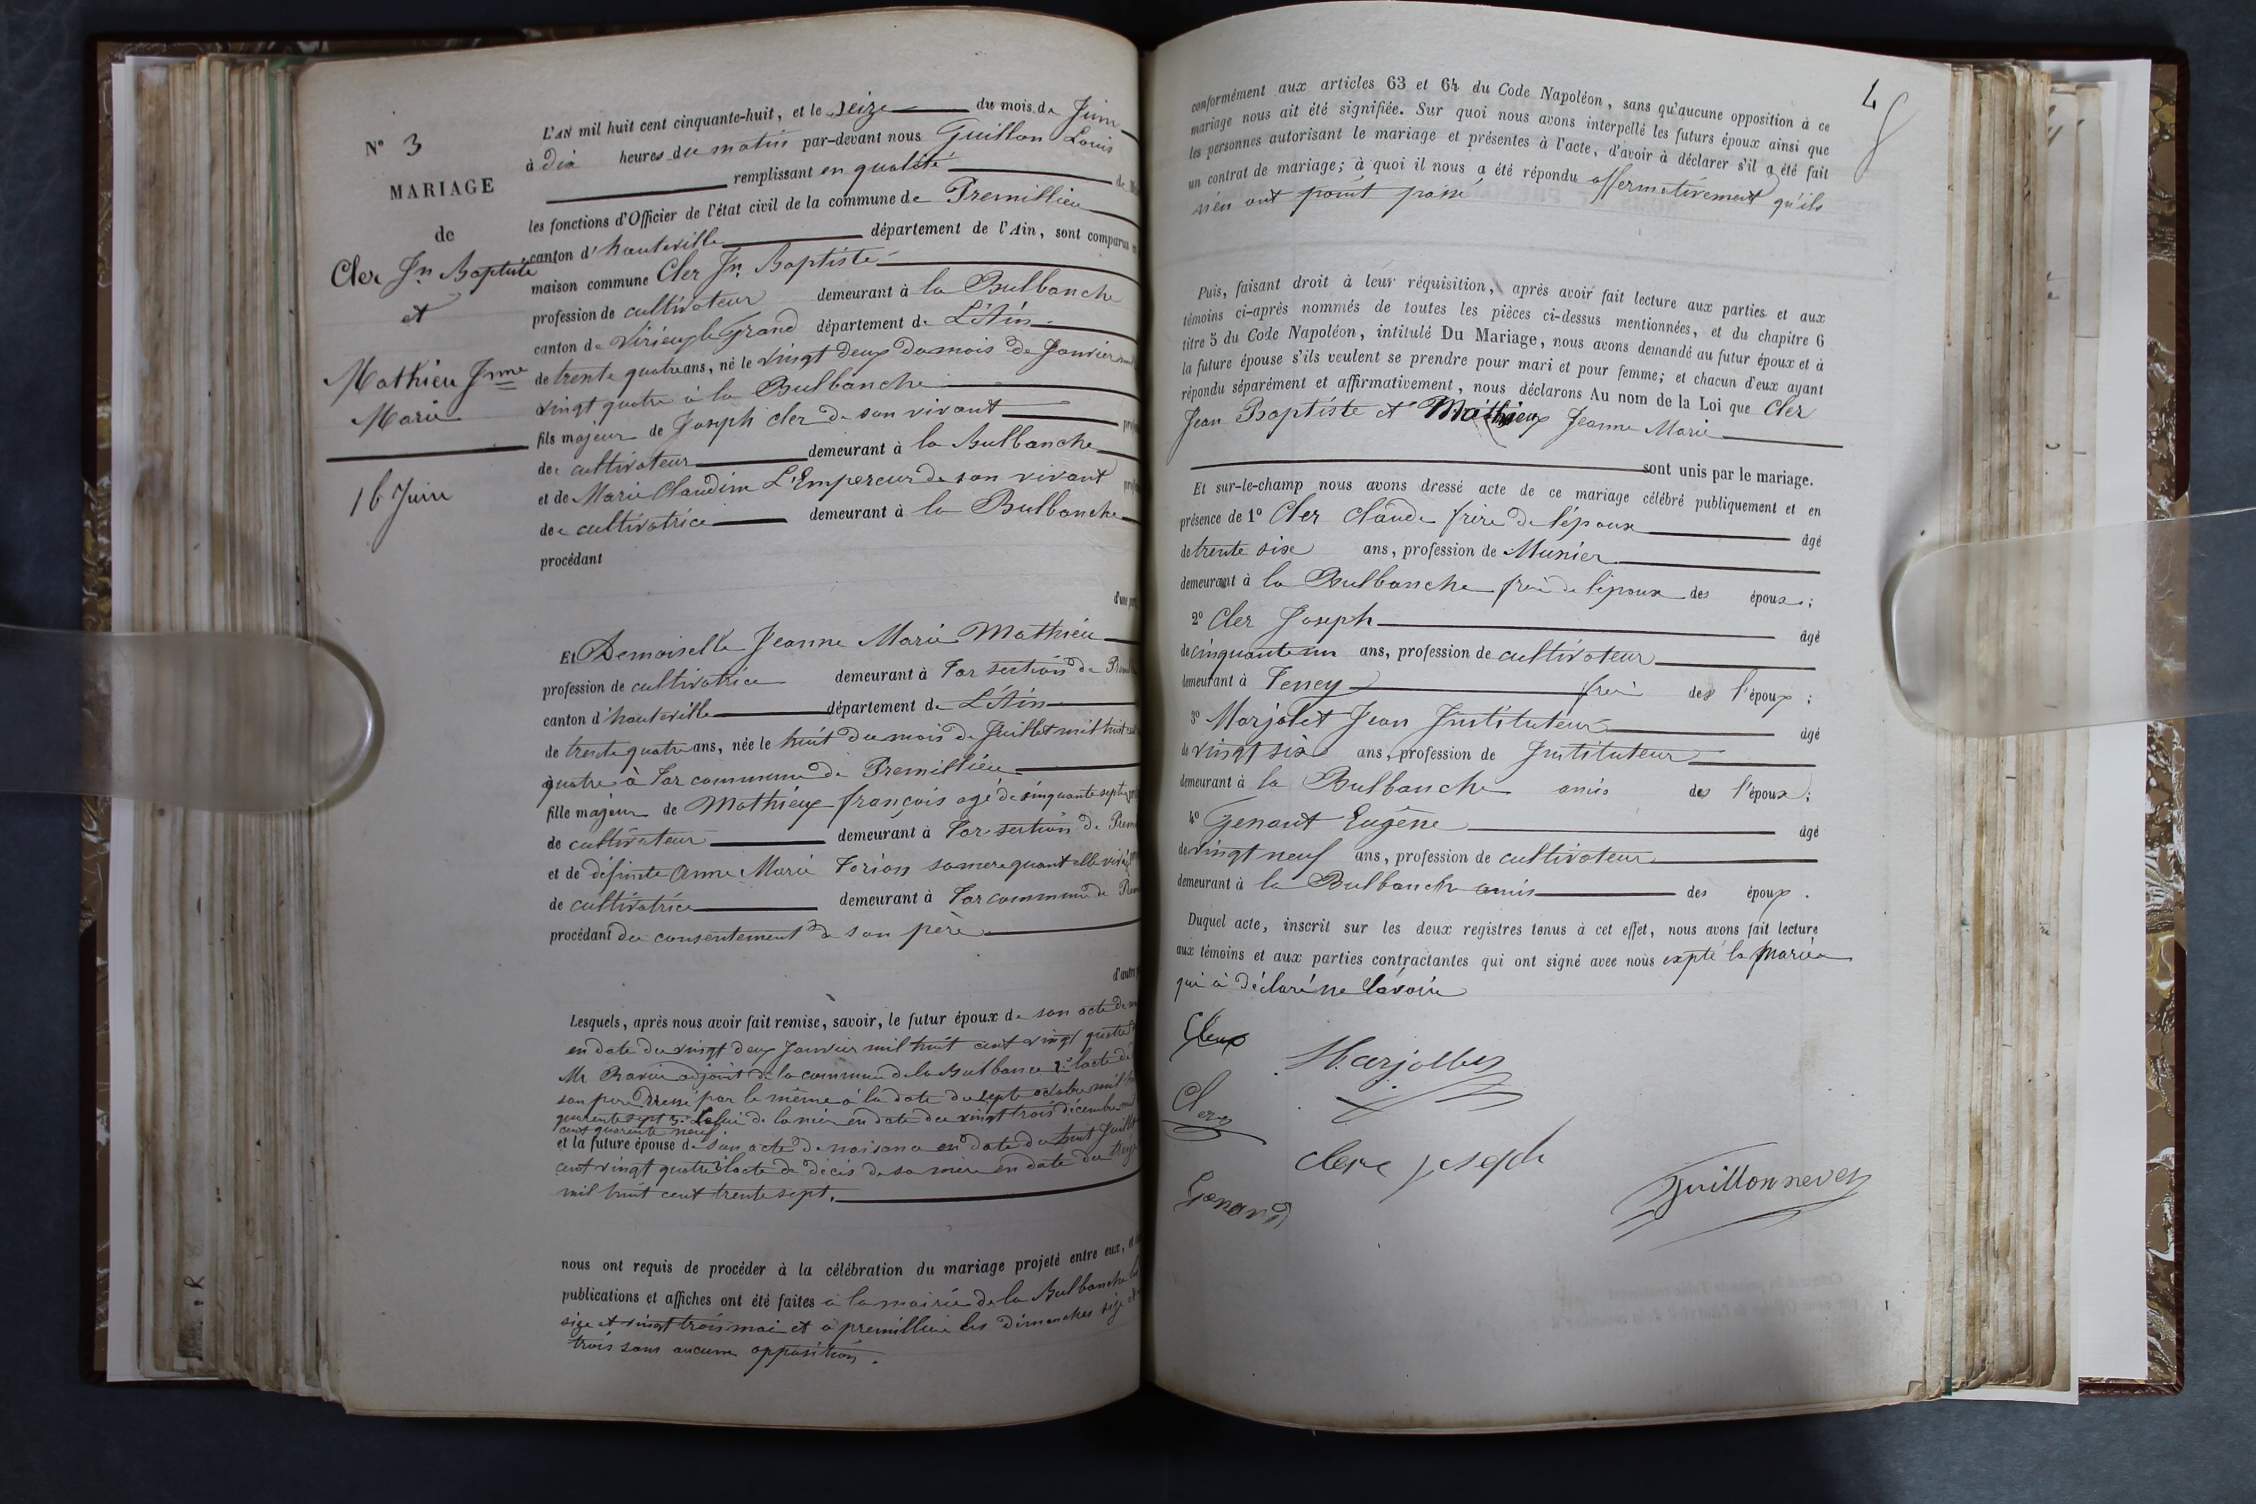 N° 3
MARIAGE
de
Cler Jn Baptiste
et
Mathieu Jnne
Marie
16 Juin
L'AN mil huit cent cinquante-huit, et le seize du mois de Juin
à dix heures du matin par-devant nous Guillon Louis
remplissant en qualité de
les fonctions d'Officier de l'état civil de la commune de Premillieu
canton d'hauteville département de l'Ain, sont comparus
maison commune Cler Jn Baptiste
profession de cultivateur demeurant à la Bulbanche
canton de Virieu le Grand département de L'Ain
de trente quatre ans, né le vingt deux du mois de Janvier
vingt quatre à la Bulbanche
fils majeur de Joseph cler de son vivant
de cultivateur demeurant à la Bulbanche
et de Marie Claudine L'Empereur de son vivant
de cultivatrice demeurant à la Bulbanche
procédant
d'une part
Et Demoiselle Jeanne Marie Mathieu
profession de cultivatrice demeurant à Tar section de
canton d'hauteville département de L'Ain
de trente quatre ans, née le huit du mois de Juillet mil huit
quatre à Tar commune de Premillieu
fille majeure de Mathieux françois agé de cinquante sept
de cultivateur demeurant à Tar section de
et de défunte Anne Marie Torion sa mere quant elle
de cultivatrice demeurant à Tar commune de
procédant du consentement de son père
d'autre
Lesquels, après nous avoir fait remise, savoir, le futur époux de son acte de
en date du vingt deux Janvier mil huit cent vingt quatre
Mr Ravier adjoint de la commune de la Bulbance 2° l'acte de
son pere dressé par le même à la date du sept octobre mil
quarante sept 3° Celui de la mère en date du vingt trois décembre
cent quarante neuf
et la future épouse de son acte de naisance en date du huit Juillet
cent vingt quatre l'acte de décès de sa mère en date du
mil huit cent trente sept.
nous ont requis de procéder à la célébration du mariage projeté entre eux,
publications et affiches ont été faites à la mairie de la Bulbanche
size et vingt trois mai et à premillieu les dimanches size
trois sans aucune opposition.
4
conformément aux articles 63 et 64 du Code Napoléon, sans qu'aucune opposition à ce
mariage nous ait été signifiée. Sur quoi nous avons interpellé les futurs époux ainsi que
les personnes autorisant le mariage et présentes à l'acte, d'avoir à déclarer s'il a été fait
un contrat de mariage; à quoi il nous a été répondu affermativement qu'ils
n'en ont point passé
Puis, faisant droit à leur réquisition, après avoir fait lecture aux parties et aux
témoins ci-après nommés de toutes les pièces ci-dessus mentionnées, et du chapitre 6
titre 5 du Code Napoléon, intitulé Du Mariage, nous avons demandé au futur époux et à
la future épouse s'ils veulent se prendre pour mari et pour femme; et chacun d'eux ayant
répondu séparément et affirmativement, nous déclarons Au nom de la Loi que Cler
Jean Baptiste et Mathieux Jeanne Marie
sont unis par le mariage.
Et sur-le-champ nous avons dressé acte de ce mariage célébré publiquement et en
présence de 1° Cler Claude frère de l'époux âgé
de trente six ans, profession de Munier
demeurant à la Bulbanche frère de l'époux des époux;
2° Cler Joseph âgé
de cinquante un ans, profession de cultivateur
demeurant à Teney frère des l'époux;
3° Marjolet Jean Instituteur âgé
de vingt six ans, profession de Instituteur
demeurant à la Bulbanche amis des l'époux;
4° Genant Eugène âgé
de vingt neuf ans, profession de cultivateur
demeurant à la Bulbanche amis des époux.
Duquel acte, inscrit sur les deux registres tenus à cet effet, nous avons fait lecture
aux témoins et aux parties contractantes qui ont signé avec nous expté la mariée
qui à déclaré ne savoir
Marjollet
Clerc
Clerc joseph
Genand
Guillon